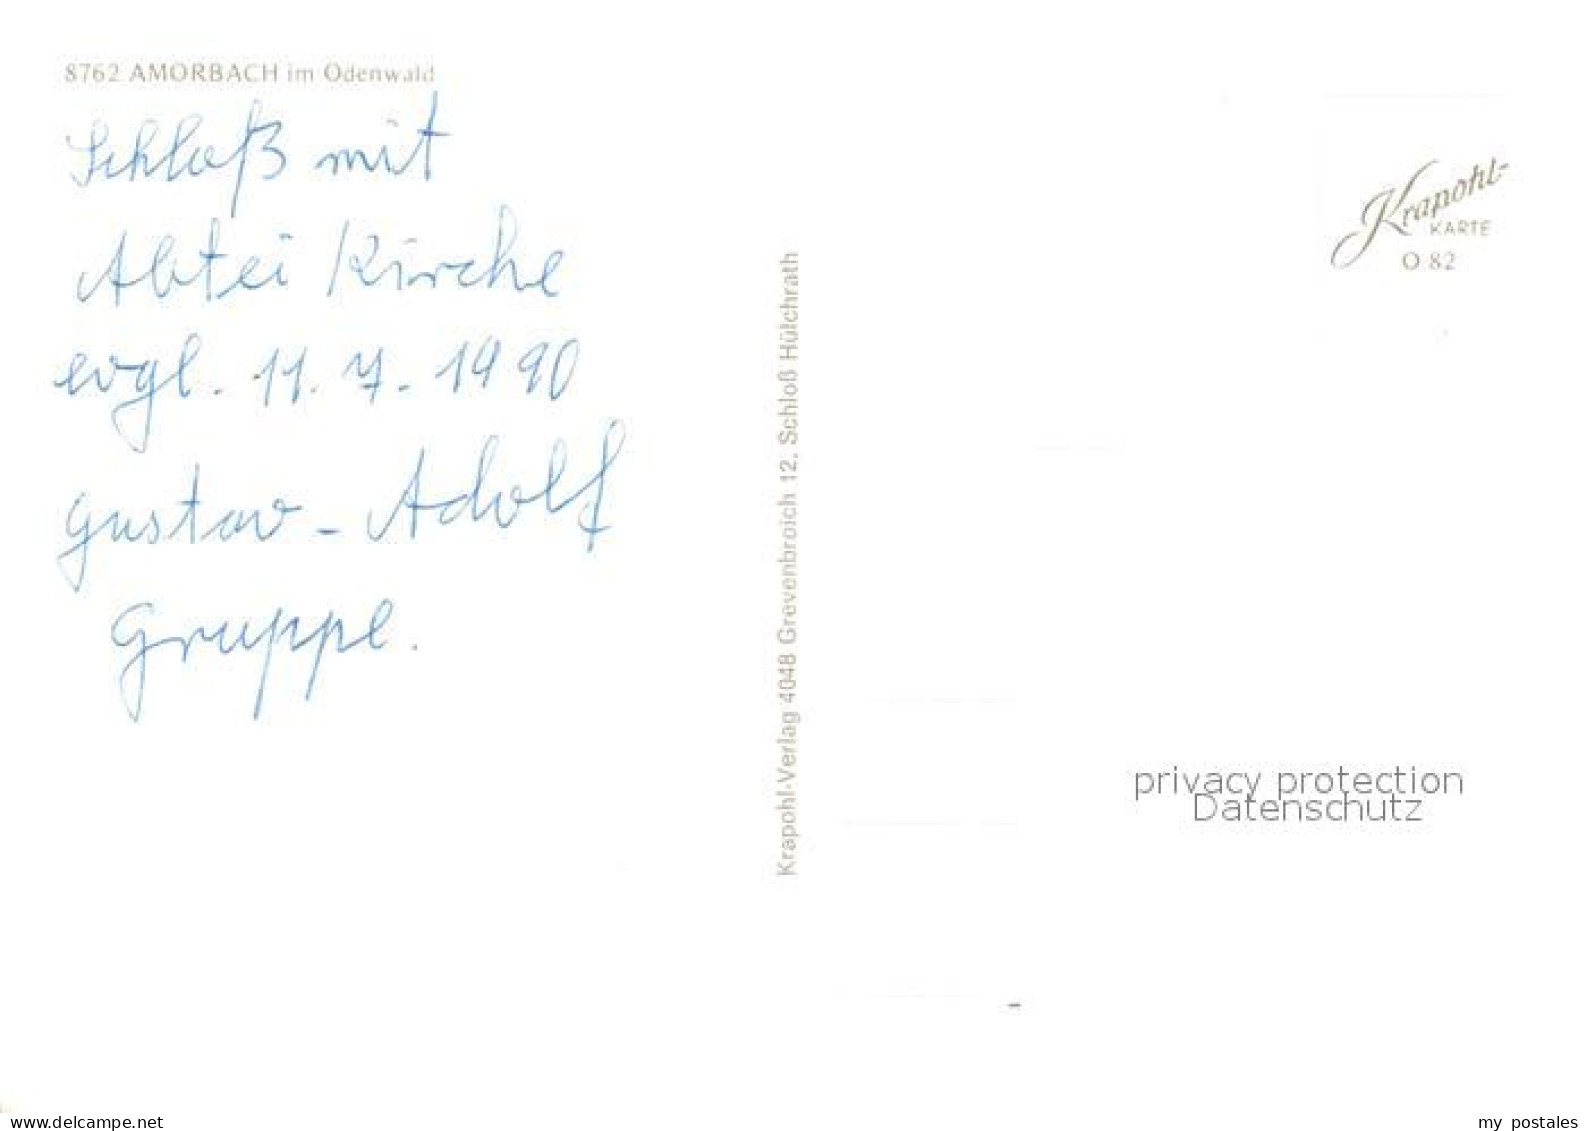 8762 AMORBACH im Odenwald
Schloß mit
Abtei Kirche
evgl. 11. 7. 1990
Gustav - Adolf
Gruppe.
Krapohl-Verlag 4048 Grevenbroich 12, Schloß Hülchrath
Krapohl-
KARTE
O 82
privacy protection
Datenschutz
delcampe.net
my_postales